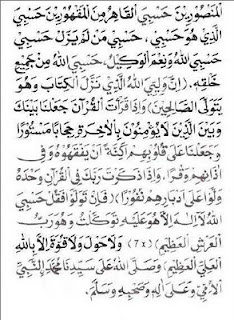 المَنْصُورِيْنَ حَسْبِيَ القَاهِرُ مِنَ المَقْهُورِيْنَ حَسْبِيَ
الَّذِي هُوَ حَسْبِي، حَسْبِيَ مَنْ لَمْ يَزَلْ حَسْبِيَ
حَسْبِيَ اللهُ وَنِعْمَ الْوَكِيْلُ، حَسْبِيَ اللهُ مِنْ جَمِيْعِ
خَلْقِهِ. (اِنَّ وَلِيِّيَ اللهُ الَّذِي نَزَّلَ الْكِتَابَ وَهُوَ
يَتَوَلَّى الصَّالِحِيْنَ) (وَاِذَا قَرَأْتَ الْقُرْآنَ جَعَلْنَا بَيْنَكَ
وَبَيْنَ الَّذِيْنَ لَا يُؤْمِنُوْنَ بِالْآخِرَةِ حِجَابًا مَسْتُوْرًا
وَجَعَلْنَا عَلَى قُلُوْبِهِمْ اَكِنَّةً اَنْ يَفْقَهُوْهُ وَفِى
اٰذَانِهِمْ وَقْرًا، وَاِذَا ذَكَرْتَ رَبَّكَ فِى الْقُرْآنِ وَحْدَهُ
وَلَّوْا عَلَى اَدْبَارِهِمْ نُفُوْرًا) (فَاِنْ تَوَلَّوْا فَقُلْ حَسْبِيَ
اللهُ لَا اِلٰهَ اِلَّا هُوَ عَلَيْهِ تَوَكَّلْتُ وَهُوَ رَبُّ
الْعَرْشِ الْعَظِيْمِ) (٧x) وَلَا حَوْلَ وَلَا قُوَّةَ اِلَّا بِاللهِ
الْعَلِيِّ الْعَظِيْمِ) وَصَلَّى اللهُ عَلَى سَيِّدِنَا مُحَمَّدٍ النَّبِيِّ
الْاُمِّيِّ وَعَلَى اٰلِهِ وَصَحْبِهِ وَسَلَّمَ.